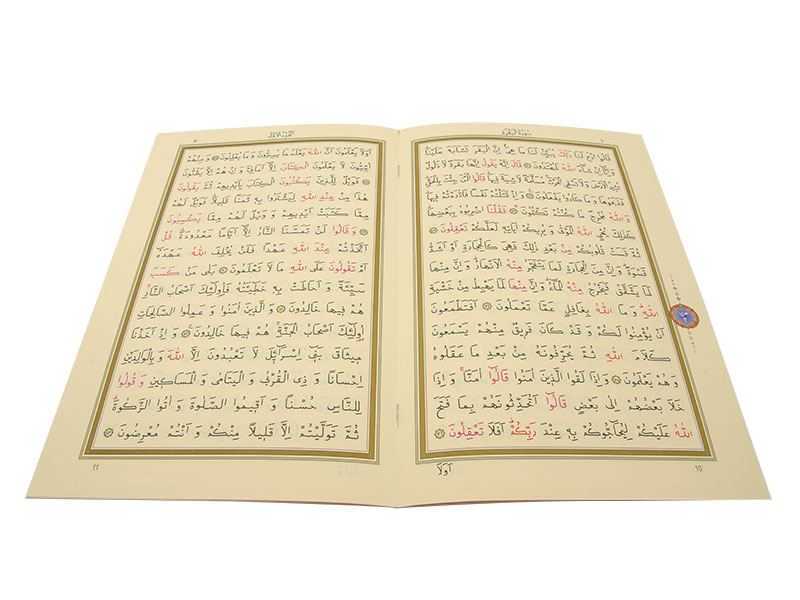 سورة البقرة
قَالُوا ادْعُ لَنَا رَبَّكَ يُبَيِّنْ لَنَا مَا هِيَ اِنَّ الْبَقَرَ تَشَابَهَ عَلَيْنَا
وَاِنَّا اِنْ شَاءَ اللّٰهُ لَمُهْتَدُونَ قَالَ اِنَّهُ يَقُولُ اِنَّهَا بَقَرَةٌ لَا ذَلُولٌ
تُثِيرُ الْاَرْضَ وَلَا تَسْقِي الْحَرْثَ مُسَلَّمَةٌ لَا شِيَةَ فِيهَا قَالُوا الْـٰٔنَ جِئْتَ بِالْحَقِّ
فَذَبَحُوهَا وَمَا كَادُوا يَفْعَلُونَ وَاِذْ قَتَلْتُمْ نَفْسًا فَادَّارَءْتُمْ فِيهَا
وَاللّٰهُ مُخْرِجٌ مَا كُنْتُمْ تَكْتُمُونَ فَقُلْنَا اضْرِبُوهُ بِبَعْضِهَا
كَذٰلِكَ يُحْيِي اللّٰهُ الْمَوْتٰى وَيُرِيكُمْ اٰيَاتِهِ لَعَلَّكُمْ تَعْقِلُونَ
ثُمَّ قَسَتْ قُلُوبُكُمْ مِنْ بَعْدِ ذٰلِكَ فَهِيَ كَالْحِجَارَةِ اَوْ اَشَدُّ
قَسْوَةً وَاِنَّ مِنَ الْحِجَارَةِ لَمَا يَتَفَجَّرُ مِنْهُ الْاَنْهَارُ وَاِنَّ مِنْهَا
لَمَا يَشَّقَّقُ فَيَخْرُجُ مِنْهُ الْمَاءُ وَاِنَّ مِنْهَا لَمَا يَهْبِطُ مِنْ خَشْيَةِ
اللّٰهِ وَمَا اللّٰهُ بِغَافِلٍ عَمَّا تَعْمَلُونَ اَفَتَطْمَعُونَ
اَنْ يُؤْمِنُوا لَكُمْ وَقَدْ كَانَ فَرِيقٌ مِنْهُمْ يَسْمَعُونَ
كَلَامَ اللّٰهِ ثُمَّ يُحَرِّفُونَهُ مِنْ بَعْدِ مَا عَقَلُوهُ
وَهُمْ يَعْلَمُونَ وَاِذَا لَقُوا الَّذِينَ اٰمَنُوا قَالُوا اٰمَنَّا وَاِذَا
خَلَا بَعْضُهُمْ اِلٰى بَعْضٍ قَالُوا اَتُحَدِّثُونَهُمْ بِمَا فَتَحَ
اللّٰهُ عَلَيْكُمْ لِيُحَاجُّوكُمْ بِهِ عِنْدَ رَبِّكُمْ اَفَلَا تَعْقِلُونَ
اَوَلَا
اَوَلَا يَعْلَمُونَ اَنَّ اللّٰهَ يَعْلَمُ مَا يُسِرُّونَ وَمَا يُعْلِنُونَ وَمِنْهُمْ
اُمِّيُّونَ لَا يَعْلَمُونَ الْكِتَابَ اِلَّا اَمَانِيَّ وَاِنْ هُمْ اِلَّا يَظُنُّونَ
فَوَيْلٌ لِلَّذِينَ يَكْتُبُونَ الْكِتَابَ بِاَيْدِيهِمْ ثُمَّ يَقُولُونَ
هٰذَا مِنْ عِنْدِ اللّٰهِ لِيَشْتَرُوا بِهِ ثَمَنًا قَلِيلًا فَوَيْلٌ لَهُمْ
مِمَّا كَتَبَتْ اَيْدِيهِمْ وَوَيْلٌ لَهُمْ مِمَّا يَكْسِبُونَ
وَقَالُوا لَنْ تَمَسَّنَا النَّارُ اِلَّا اَيَّامًا مَعْدُودَةً قُلْ
اَتَّخَذْتُمْ عِنْدَ اللّٰهِ عَهْدًا فَلَنْ يُخْلِفَ اللّٰهُ عَهْدَهُ
اَمْ تَقُولُونَ عَلَى اللّٰهِ مَا لَا تَعْلَمُونَ بَلٰى مَنْ كَسَبَ
سَيِّئَةً وَاَحَاطَتْ بِهِ خَطِيئَتُهُ فَاُولٰئِكَ اَصْحَابُ النَّارِ
هُمْ فِيهَا خَالِدُونَ وَالَّذِينَ اٰمَنُوا وَعَمِلُوا الصَّالِحَاتِ
اُولٰئِكَ اَصْحَابُ الْجَنَّةِ هُمْ فِيهَا خَالِدُونَ وَاِذْ اَخَذْنَا
مِيثَاقَ بَنِي اِسْرَائِلَ لَا تَعْبُدُونَ اِلَّا اللّٰهَ وَبِالْوَالِدَيْنِ
اِحْسَانًا وَذِي الْقُرْبٰى وَالْيَتَامٰى وَالْمَسَاكِينِ وَقُولُوا
لِلنَّاسِ حُسْنًا وَاَقِيمُوا الصَّلٰوةَ وَاٰتُوا الزَّكٰوةَ
ثُمَّ تَوَلَّيْتُمْ اِلَّا قَلِيلًا مِنْكُمْ وَاَنْتُمْ مُعْرِضُونَ